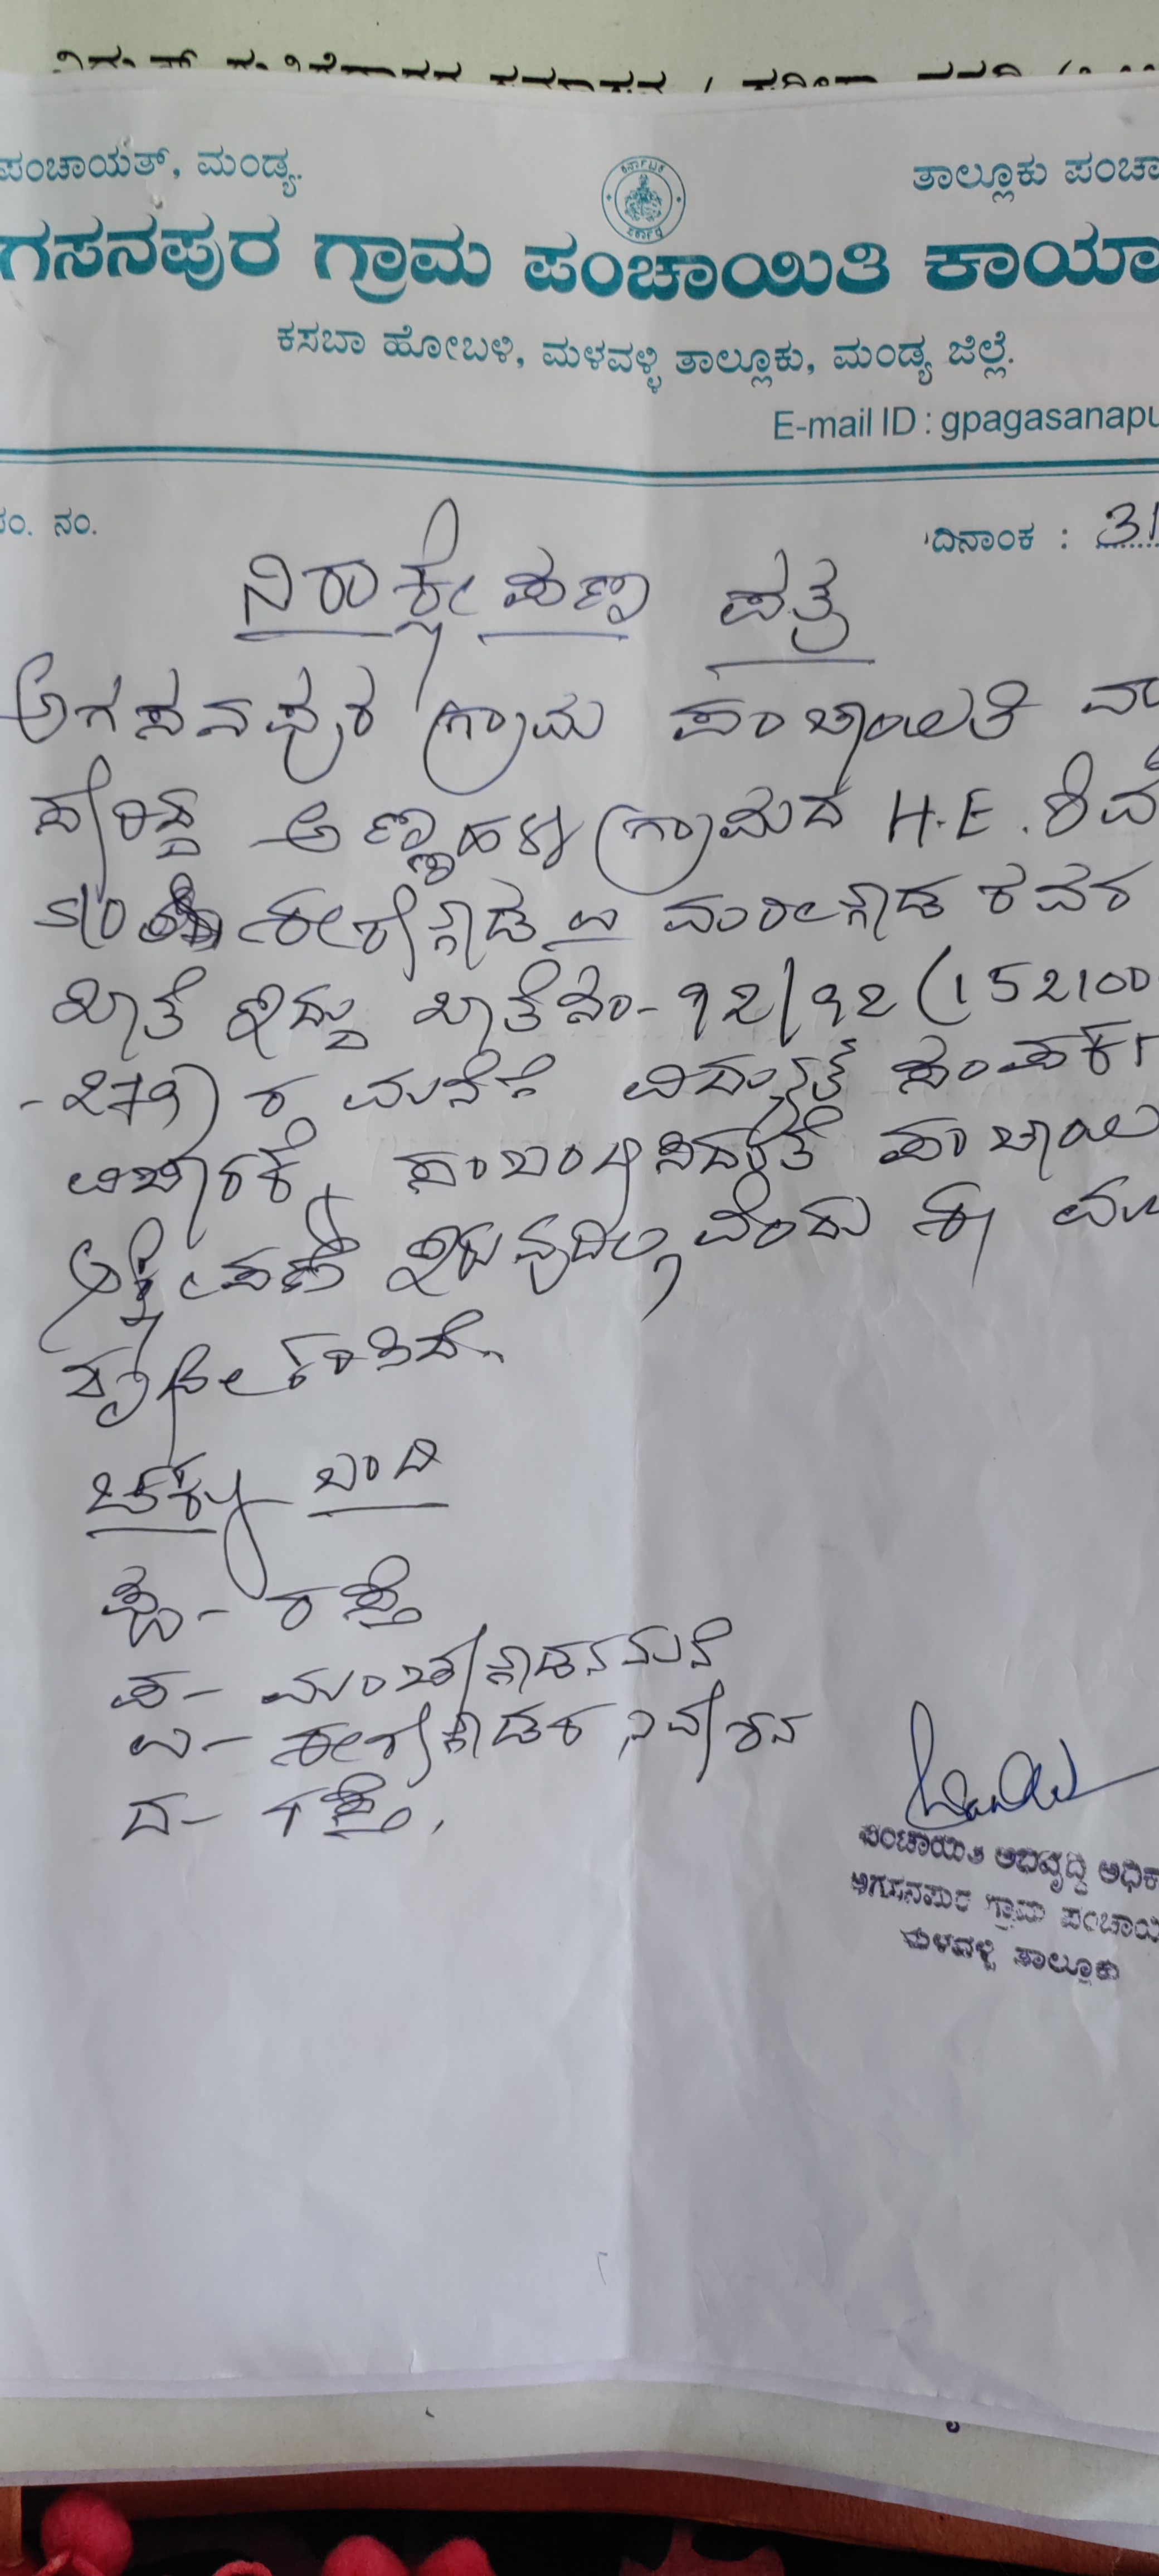 ಪಂಚಾಯತ್, ಮಂಡ್ಯ. ತಾಲ್ಲೂಕು ಪಂಚಾ
ಗಸನಪುರ ಗ್ರಾಮ ಪಂಚಾಯಿತಿ ಕಾರ್ಯಾ
ಕಸಬಾ ಹೋಬಳಿ, ಮಳವಳ್ಳಿ ತಾಲ್ಲೂಕು, ಮಂಡ್ಯ ಜಿಲ್ಲೆ.
E-mail ID : gpagasanapu
ಸಂ. ನಂ. ದಿನಾಂಕ : 31
ನಿರಾಕ್ಷೇಪಣಾ ಪತ್ರ
ಅಗಸನಪುರ ಗ್ರಾಮ ಪಂಚಾಯಿತಿ ವ್ಯಾ
ಅಣ್ಣಹಳ್ಳಿ ಗ್ರಾಮದ H.E. ಶಿವ
S/o ಈರೇಗೌಡ ಮರೀಗೌಡ ರವರ
ಖಾತೆ ಇದ್ದು ಖಾತೆ ನಂ- 92/92 (152100
-279) ರ ಮನೆಗೆ ವಿದ್ಯುತ್ ಸಂಪರ್ಕ
ವಿಚಾರಕ್ಕೆ ಸಂಬಂಧಿಸಿದಂತೆ ಪಂಚಾಯಿ
ಆಕ್ಷೇಪಣೆ ಇರುವುದಿಲ್ಲವೆಂದು ಈ ಮೂ
ದೃಢೀಕರಿಸಿದೆ.
ಚಕ್ಕು ಬಂದಿ
ಪೂ - ರಸ್ತೆ
ಪ - ಮಂಚೇಗೌಡನ ಮನೆ
ಉ - ಈರೇಗೌಡರ ನಿವೇಶನ
ದ - ರಸ್ತೆ,
ಪಂಚಾಯಿತಿ ಅಭಿವೃದ್ಧಿ ಅಧಿಕಾ
ಅಗಸನಪುರ ಗ್ರಾಮ ಪಂಚಾಯಿ
ಮಳವಳ್ಳಿ ತಾಲ್ಲೂಕು